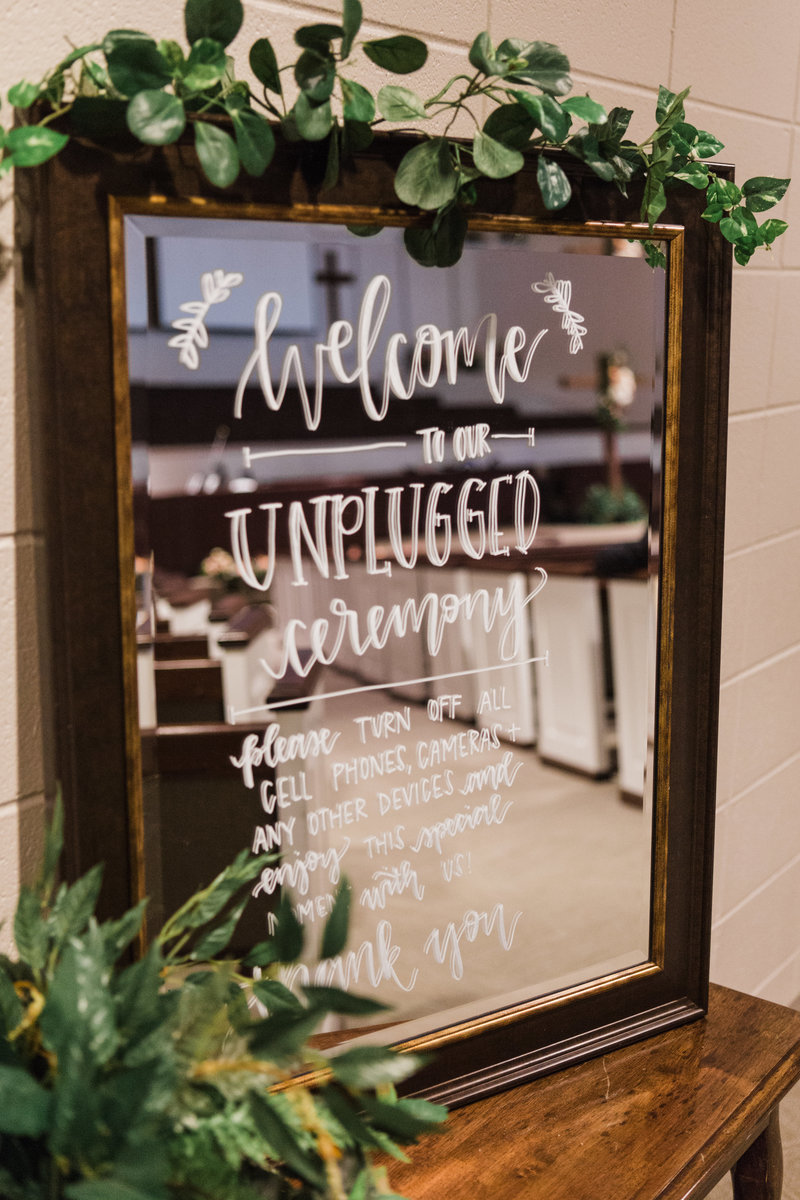 welcome
TO OUR
UNPLUGGED
ceremony
please TURN OFF ALL
CELL PHONES, CAMERAS +
ANY OTHER DEVICES and
enjoy THIS special
MOMENT with US!
thank you